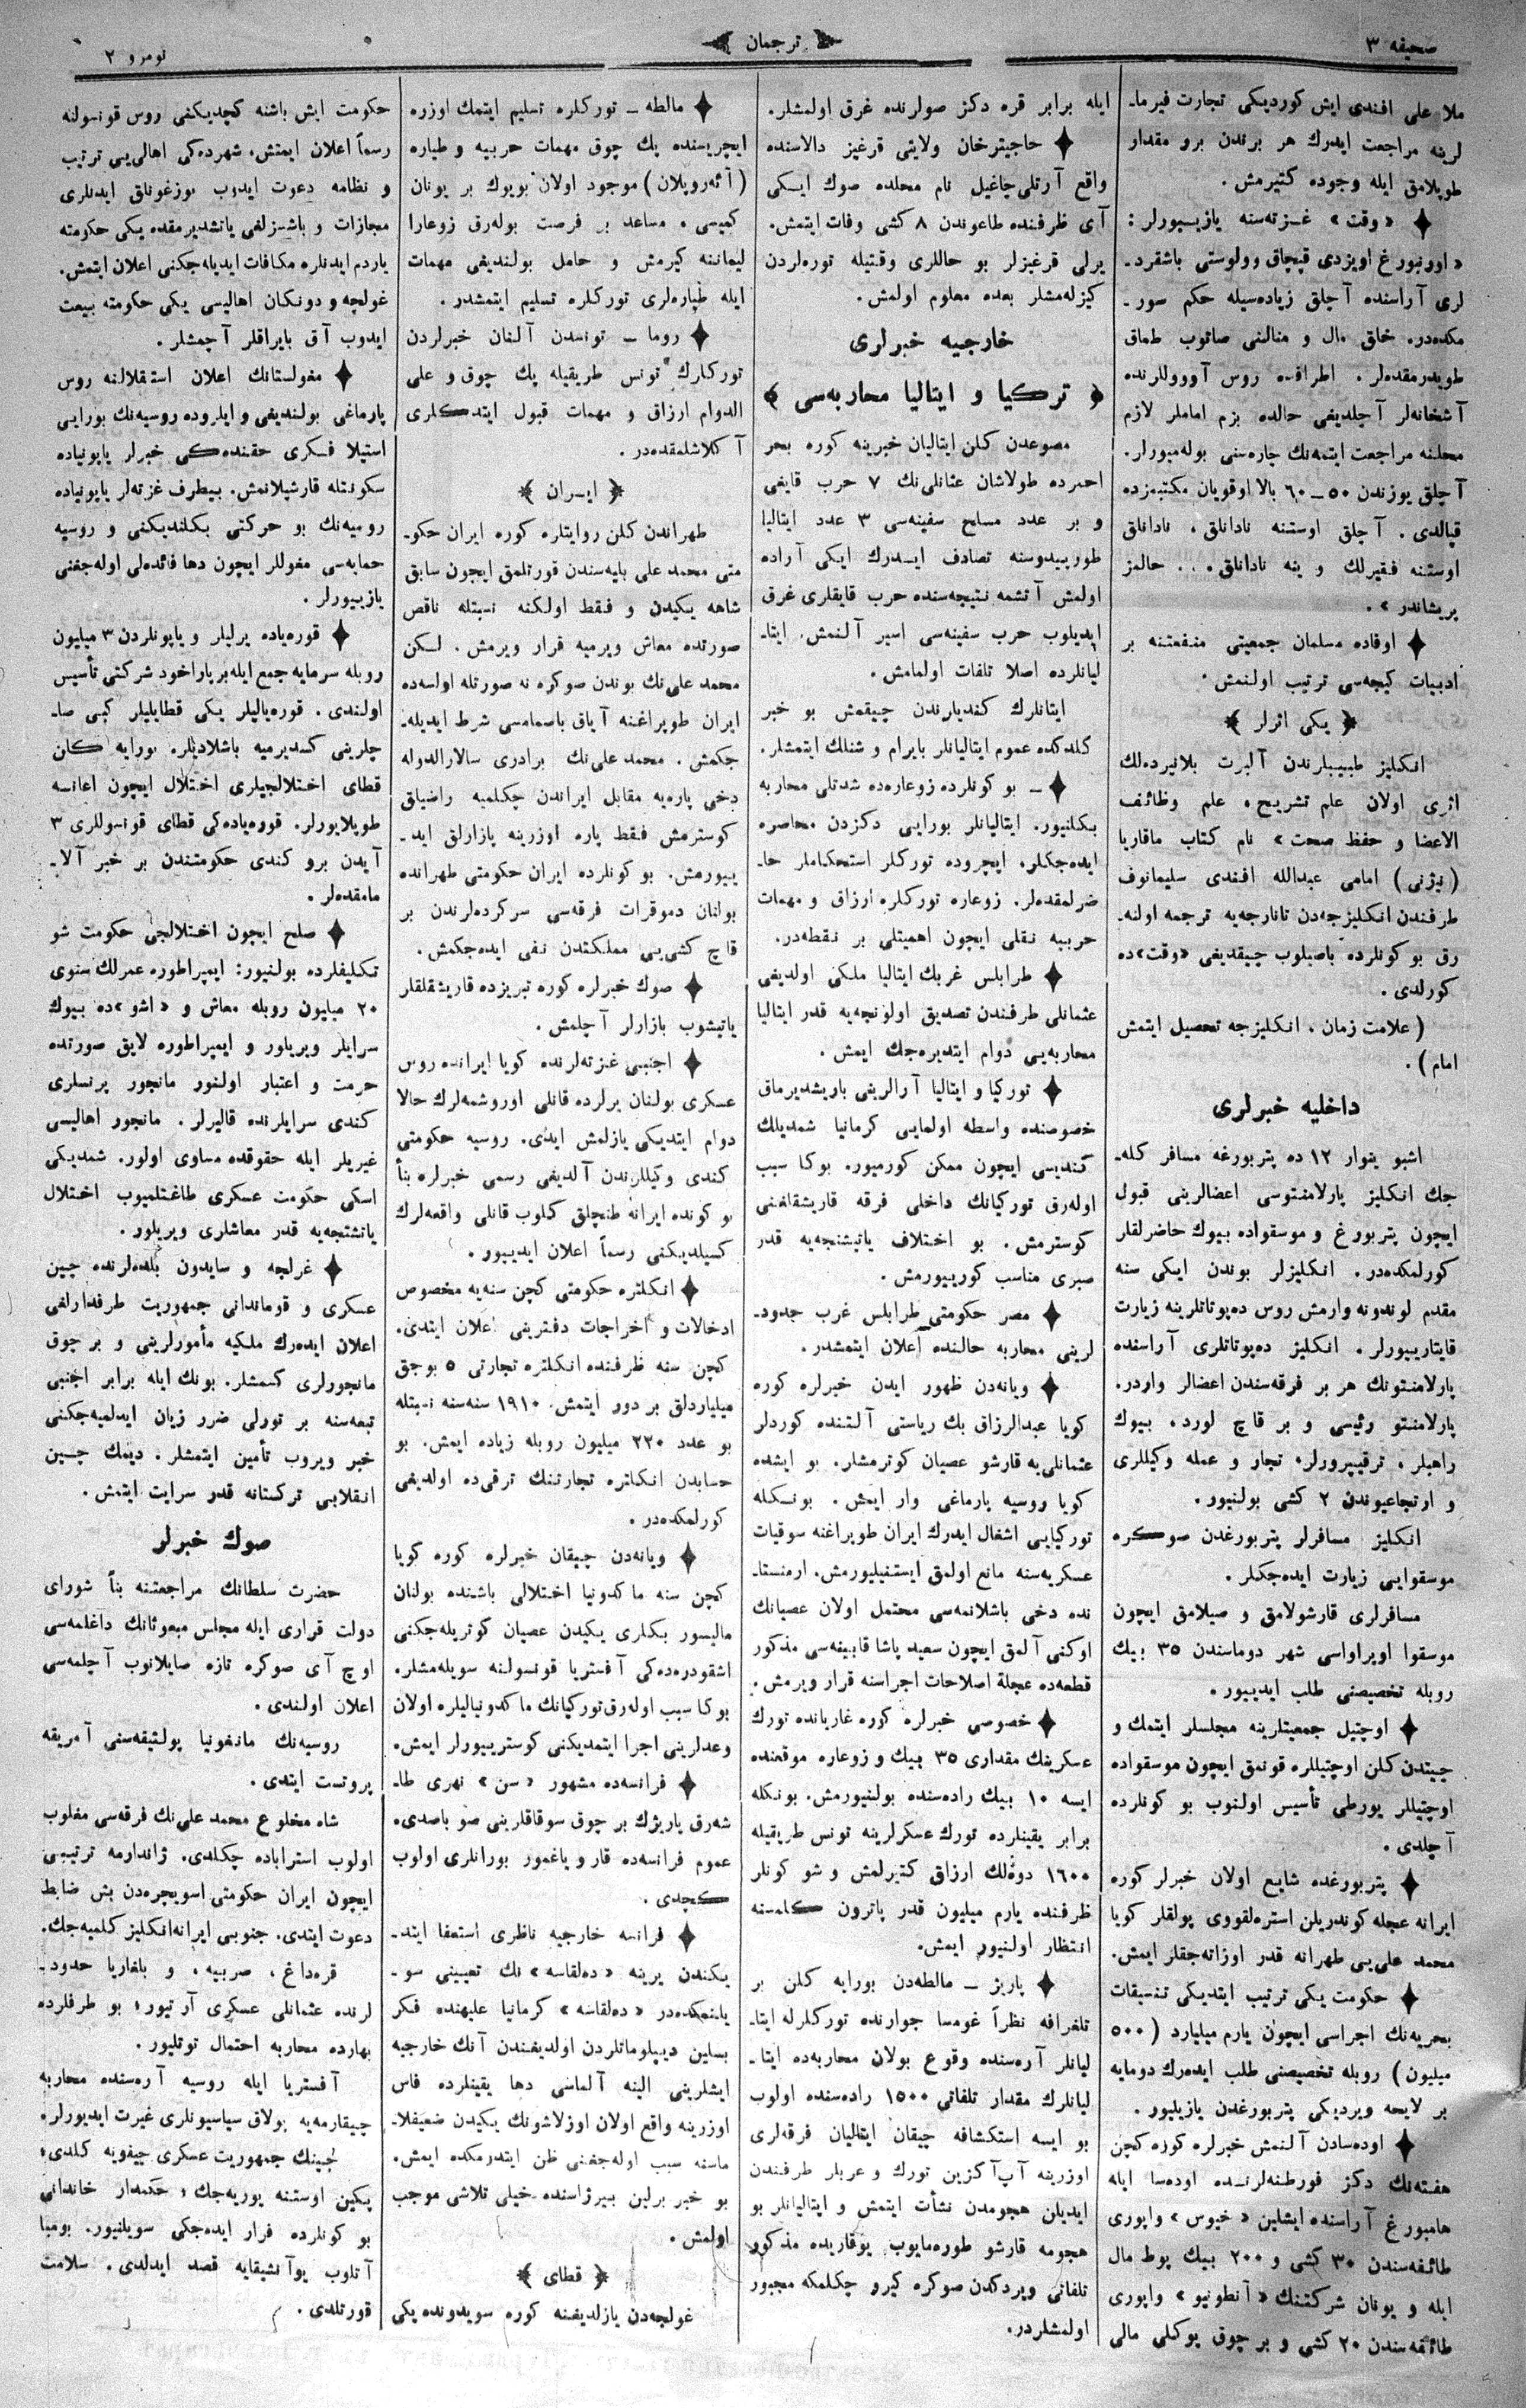 صحیفه ٣
ترجمان
نومرو ٢
ملا علی افندی ایش کوردیکی تجارت فیرما-
لرینه مراجعت ایدرك هر برندن برو مقدار
طوپلامق ایله وجوده کتیرمش.
«وقت» غزته‌سنه یازیيورلر:
«اورنبورغ اویزدی قپچاق وولوستی باشقرد-
لری آراسنده آچلق زیاده‌سیله حکم سور-
مکده‌در. خلق مال و منالنی صاتوب طماق
طویدرمقده‌لر. اطرافده روس آووللرنده
آشخانه‌لر آچلدیغی حالده بزم اماملر لازم
محلنه مراجعت ایتمه‌نك چاره‌سنی بوله‌میورلر.
آچلق یوزندن ٥٠-٦٠ بالا اوقویان مکتبمزده
قپالدی. آچلق اوستنه نادانلق، نادانلق
اوستنه فقیرلك و ینه نادانلق... حالمز
پریشاندر».
اوفاده مسلمان جمعیتی منفعتنه بر
ادبیات کیجه‌سی ترتیب اولنمش.
﴿ یکی اثرلر ﴾
انکلیز طبیبلرندن آلبرت بلانیرده‌لك
اثری اولان علم تشریح، علم وظائف
الاعضا و حفظ صحت» نام کتاب ماقاریا
(نیژنی) امامی عبدالله افندی سلیمانوف
طرفندن انکلیزجه‌دن تاتارجه‌یه ترجمه اولنه-
رق بو کونلرده باصیلوب چیقدیغی «وقت»ده
کورلدی.
(علامت زمان، انکلیزجه تحصیل ایتمش
امام).
داخلیه خبرلری
اشبو ینوار ١٢ ده پتربورغه مسافر کله-
جك انکلیز پارلامنتوسی اعضالرینی قبول
ایچون پتربورغ و موسقواده بیوك حاضرلقلر
کورلمکده‌در. انکلیزلر بوندن ایکی سنه
مقدم لوندونه وارمش روس ده‌پوتاتلرینه زیارت
قایتارییورلر. انکلیز ده‌پوتاتلری آراسنده
پارلامنتونك هر بر فرقه‌سندن اعضالر واردر.
پارلامنتو رئیسی و بر قاچ لورد، بیوك
راهبلر، ترقیپرورلر، تجار و عمله وکیللری
و ارتجاعیوندن ٢ کشی بولنیور.
انکلیز مسافرلر پتربورغدن صوکره
موسقوایی زیارت ایده‌جکلر.
مسافرلری قارشولامق و صیلامق ایچون
موسقوا اوپراواسی شهر دوماسندن ٣٥ بیك
روبله تخصیصنی طلب ایدییور.
اوچتیل جمعیتلرینه مجلسلر ایتمك و
چیتدن کلن اوچتیللره قونمق ایچون موسقواده
اوچتیللر یورطی تأسیس اولنوب بو کونلرده
آچلدی.
پتربورغده شایع اولان خبرلر کوره
ایرانه عجله کوندریلن استره‌لقووی پولقلر کویا
محمد علی‌یی طهرانه قدر اوزاته‌جقلر ایمش.
حکومت یکی ترتیب ایتدیکی تنسیقات
بحریه‌نك اجراسی ایچون یارم میلیارد (٥٠٠
میلیون) روبله تخصیصنی طلب ایده‌رك دومایه
بر لایحه ویردیکی پتربورغدن یازیلیور.
اوده‌سادن آلنمش خبرلره کوره کچن
هفته‌نك دکز فورطنه‌لرنده اوده‌سا ایله
هامبورغ آراسنده ایشلین «خیوس» واپوری
طائفه‌سندن ٣٠ کشی و ٢٠٠ بیك پوط مال
ایله و یونان شرکتنك «آنطونیو» واپوری
طائفه‌سندن ٢٠ کشی و بر چوق یوکلی مالی
ایله برابر قره دکز صولرنده غرق اولمشلر.
حاجیترخان ولایتی قرغیز دالاسنده
واقع آرتلی‌چاغیل نام محلده صوك ایکی
آی ظرفنده طاعوندن ٨ کشی وفات ایتمش.
یرلی قرغیزلر بو حاللری وقتیله توره‌لردن
کیزله‌مشلر بعده معلوم اولمش.
خارجیه خبرلری
﴿ ترکیا و ایتالیا محاربه‌سی ﴾
مصوعدن کلن ایتالیان خبرینه کوره بحر
احمرده طولاشان عثمانلی‌نك ٧ حرب قایغی
و بر عدد مسلح سفینه‌سی ٣ عدد ایتالیا
طورپیدوسنه تصادف ایدرك ایکی آراده
اولمش آتشمه نتیجه‌سنده حرب قایقلری غرق
ایدیلوب حرب سفینه‌سی اسیر آلنمش. ایتا-
لیانلرده اصلا تلفات اولمامش.
ایتانلرك کندیلرندن چیقمش بو خبر
کلدکده عموم ایتالیانلر بایرام و شنلك ایتمشلر.
- بو کونلرده زوعاره‌ده شدتلی محاربه
بکلنیور. ایتالیانلر بورایی دکزدن محاصره
ایده‌جکلر، ایچروده تورکلر استحکاملر حا-
ضرلمقده‌لر. زوعاره تورکلره ارزاق و مهمات
حربیه نقلی ایچون اهمیتلی بر نقطه‌در.
طرابلس غربك ایتالیا ملکی اولدیغی
عثمانلی طرفندن تصدیق اولونجه‌یه قدر ایتالیا
محاربه‌یی دوام ایتدیره‌جك ایمش.
تورکیا و ایتالیا آرالرینی باریشدیرماق
خصوصنده واسطه اولمایی کرمانیا شمدیلك
کندیسی ایچون ممکن کورمیور. بوکا سبب
اوله‌رق تورکیانك داخلی فرقه قاریشقاغنی
کوسترمش. بو اختلاف یاتیشنجه‌یه قدر
صبری مناسب کورییورمش.
مصر حکومتی طرابلس غرب حدود-
لرینی محاربه حالنده اعلان ایتمشدر.
ویانه‌دن ظهور ایدن خبرلره کوره
کویا عبدالرزاق بك ریاستی آلتنده کوردلر
عثمانلی‌یه قارشو عصیان کوترمشلر. بو ایشده
کویا روسیه پارماغی وار ایمش. بونکله
تورکیایی اشغال ایدرك ایران طوپراغنه سوقیات
عسکریه‌سنه مانع اولمق ایستنیلیورمش. ارمنستا-
نده دخی باشلانمه‌سی محتمل اولان عصیانك
اوکنی آلمق ایچون سعید پاشا قابینه‌سی مذکور
قطعه‌ده عجلة اصلاحات اجراسنه قرار ویرمش.
خصوصی خبرلره کوره غاریانده تورك
عسکرینك مقداری ٣٥ بیك و زوعاره موقعنده
ایسه ١٠ بیك راده‌سنده بولنیورمش. بونکله
برابر یقینلرده تورك عسکرلرینه تونس طریقیله
١٦٠٠ دوه‌لك ارزاق کتیرلمش و شو کونلر
ظرفنده یارم میلیون قدر پاترون کلمسنه
انتظار اولنیور ایمش.
پاریژ - مالطه‌دن بورایه کلن بر
تلغرافه نظراً غومسا جوارنده تورکلرله ایتا-
لیانلر آره‌سنده وقوع بولان محاربه‌ده ایتا-
لیانلرك مقدار تلفاتی ١٥٠٠ راده‌سنده اولوب
بو ایسه استکشافه چیقان ایتالیان فرقه‌لری
اوزرینه آپ‌آکزین تورك و عربلر طرفندن
ایدیلن هجومدن نشأت ایتمش و ایتالیانلر بو
هجومه قارشو طوره‌مایوب یوقاریده مذکور
تلفاتی ویردکدن صوکره کیرو چکلمکه مجبور
اولمشلردر.
مالطه - تورکلره تسلیم ایتمك اوزره
ایچریسنده پك چوق مهمات حربیه و طیاره
(آئه‌روپلان) موجود اولان بویوك بر یونان
کمیسی، مساعد بر فرصت بوله‌رق زوعارا
لیماننه کیرمش و حامل بولندیغی مهمات
ایله طیاره‌لری تورکلره تسلیم ایتمشدر.
روما - تونسدن آلنان خبرلردن
تورکلرك تونس طریقیله پك چوق و علی
الدوام ارزاق و مهمات قبول ایتدکلری
آکلاشلمقده‌در.
﴿ ایران ﴾
طهراندن کلن روایتلره کوره ایران حکو-
متی محمد علی بلیه‌سندن قورتلمق ایچون سابق
شاهه یکیدن و فقط اولکنه نسبتله ناقص
صورتده معاش ویرمیه قرار ویرمش. لکن
محمد علی‌نك بوندن صوکره نه صورتله اولسه‌ده
ایران طوپراغنه آیاق باصمامسی شرط ایدیله-
جکمش. محمد علی‌نك برادری سالارالدوله
دخی پاره‌یه مقابل ایراندن چکلمیه راضیلق
کوسترمش فقط پاره اوزرینه پازارلق اید-
ییورمش. بو کونلرده ایران حکومتی طهرانده
بولنان دموقرات فرقه‌سی سرکرده‌لرندن بر
قاچ کشی‌یی مملکتدن نفی ایده‌جکمش.
صوك خبرلره کوره تبریزده قاریشقلقلر
یاتیشوب بازارلر آچلمش.
اجنبی غزته‌لرنده کویا ایرانده روس
عسکری بولنان یرلرده قانلی اوروشمه‌لرك حالا
دوام ایتدیکی یازلمش ایدی. روسیه حکومتی
کندی وکیللرندن آلدیغی رسمی خبرلره بنأ
بو کونده ایرانه طنچلق کلوب قانلی واقعه‌لرك
کسیلدیکنی رسماً اعلان ایدییور.
انکلتره حکومتی کچن سنه‌یه مخصوص
ادخالات و اخراجات دفترینی اعلان ایتدی.
کچن سنه ظرفنده انکلتره تجارتی ٥ بوجق
میلیاردلق بر دور ایتمش. ١٩١٠ سنه‌سنه نسبتله
بو عدد ٢٢٠ میلیون روبله زیاده ایمش. بو
حسابدن انکلتره تجارتنك ترقی‌ده اولدیغی
کورلمکده‌در.
ویانه‌دن چیقان خبرلره کوره کویا
کچن سنه ماکدونیا اختلالی باشنده بولنان
مالیسور بکلری یکیدن عصیان کوتریله‌جکنی
اشقودره‌ده‌کی آفستریا قونسولنه سویله‌مشلر.
بوکا سبب اوله‌رق تورکیانك ماکدونیالیلره اولان
وعدلرینی اجرا ایتمدیکنی کوسترییورلر ایمش.
فرانسه‌ده مشهور «سن» نهری طا-
شه‌رق پاریژك بر چوق سوقاقلرینی صو باصدی.
عموم فرانسه‌ده قار و یاغمور بورانلری اولوب
کچدی.
فرانسه خارجیه ناظری استعفا ایتد-
یکندن یرینه «ده‌لقاسه»نك تعیینی سو-
یلنمکده‌در «ده‌لقاسه» کرمانیا علیهنده فکر
بسلین دیپلوماتلردن اولدیغندن آنك خارجیه
ایشلرینی الینه آلماسی دها یقینلرده فاس
اوزرینه واقع اولان اوزلاشونك یکیدن ضعیفلا-
ماسنه سبب اوله‌جغنی ظن ایتدرمکده ایمش.
بو خبر برلین بیرژاسنده خیلی تلاشی موجب
اولمش.
﴿ قطای ﴾
غولجه‌دن یازلدیغنه کوره سویدونده یکی
حکومت ایش باشنه کچدیکنی روس قونسولنه
رسماً اعلان ایتمش. شهرده‌کی اهالی‌یی ترتیب
و نظامه دعوت ایدوب بوزغونلق ایدنلری
مجازات و باشسزلغی یاتشدیرمقده یکی حکومته
یاردم ایدنلره مکافات ایدیله‌جکنی اعلان ایتمش.
غولجه و دونکان اهالیسی یکی حکومته بیعت
ایدوب آق بایراقلر آچمشلر.
مغولستانك اعلان استقلالنه روس
پارماغی بولندیغی و ایلروده روسیه‌نك بورایی
استیلا فکری حقنده‌کی خبرلر یاپونیاده
سکونتله قارشیلانمش. بیطرف غزته‌لر یاپونیاده
روسیه‌نك بو حرکتی بکلندیکنی و روسیه
حمایه‌سی مغوللر ایچون دها فائده‌لی اوله‌جغنی
یازییورلر.
قوره‌یاده یرلیلر و یاپونلردن ٣ میلیون
روبله سرمایه جمع ایله بر پاراخود شرکتی تأسیس
اولندی. قوره‌یالیلر یکی قطایلیلر کبی صا-
چلرینی کسدیرمیه باشلادیلر. بورایه کلن
قطای اختلالجیلری اختلال ایچون اعانه
طوپلایورلر. قوره‌یاده‌کی قطای قونسوللری ٣
آیدن برو کندی حکومتندن بر خبر آلا-
مامقده‌لر.
صلح ایچون اختلالجی حکومت شو
تکلیفلرده بولنیور: ایمپراطوره عمرلك سنوی
٢٠ میلیون روبله معاش و «اشو»ده بیوك
سرایلر ویریلور و ایمپراطوره لایق صورتده
حرمت و اعتبار اولنور مانجور پرنسلری
کندی سرایلرنده قالیرلر. مانجور اهالیسی
غیریلر ایله حقوقده مساوی اولور. شمدیکی
اسکی حکومت عسکری طاغتلمیوب اختلال
یاتشنجه‌یه قدر معاشلری ویریلور.
غرلجه و سایدون بلده‌لرنده چین
عسکری و قوماندانی جمهوریت طرفدارلغی
اعلان ایده‌رك ملکیه مأمورلرینی و بر چوق
مانجورلری کسمشلر. بونك ایله برابر اجنبی
تبعه‌سنه بر تورلی ضرر زیان ایدلمیه‌جکنی
خبر ویروب تأمین ایتمشلر. دیمك چین
انقلابی ترکستانه قدر سرایت ایتمش.
صوك خبرلر
حضرت سلطانك مراجعتنه بنأ شورای
دولت قراری ایله مجلس مبعوثانك داغلمه‌سی
اوچ آی صوکره تازه صایلانوب آچلمه‌سی
اعلان اولندی.
روسیه‌نك مانغونیا پولتیقه‌سنی آمریقه
پروتست ایتدی.
شاه مخلوع محمد علی‌نك فرقه‌سی مغلوب
اولوب استراباده چکلدی. ژاندارمه ترتیبی
ایچون ایران حکومتی اسویچره‌دن بش ضابط
دعوت ایتدی. جنوبی ایرانه انکلیز کلمیه‌جك.
قره‌داغ، صربیه، و بلغاریا حدود-
لرنده عثمانلی عسکری آرتیور؛ بو طرفلرده
بهارده محاربه احتمال توتلیور.
آفستریا ایله روسیه آره‌سنده محاربه
چیقارمه‌یه بولاق سیاسیونلری غیرت ایدیورلر.
چینك جمهوریت عسکری چیفویه کلدی؛
پکین اوستنه یوریه‌جك؛ حکمدار خاندانی
بو کونلرده فرار ایده‌جکی سویلنیور. بومبا
آتلوب یوآنشیقایه قصد ایدلدی. سلامت
قورتلدی.